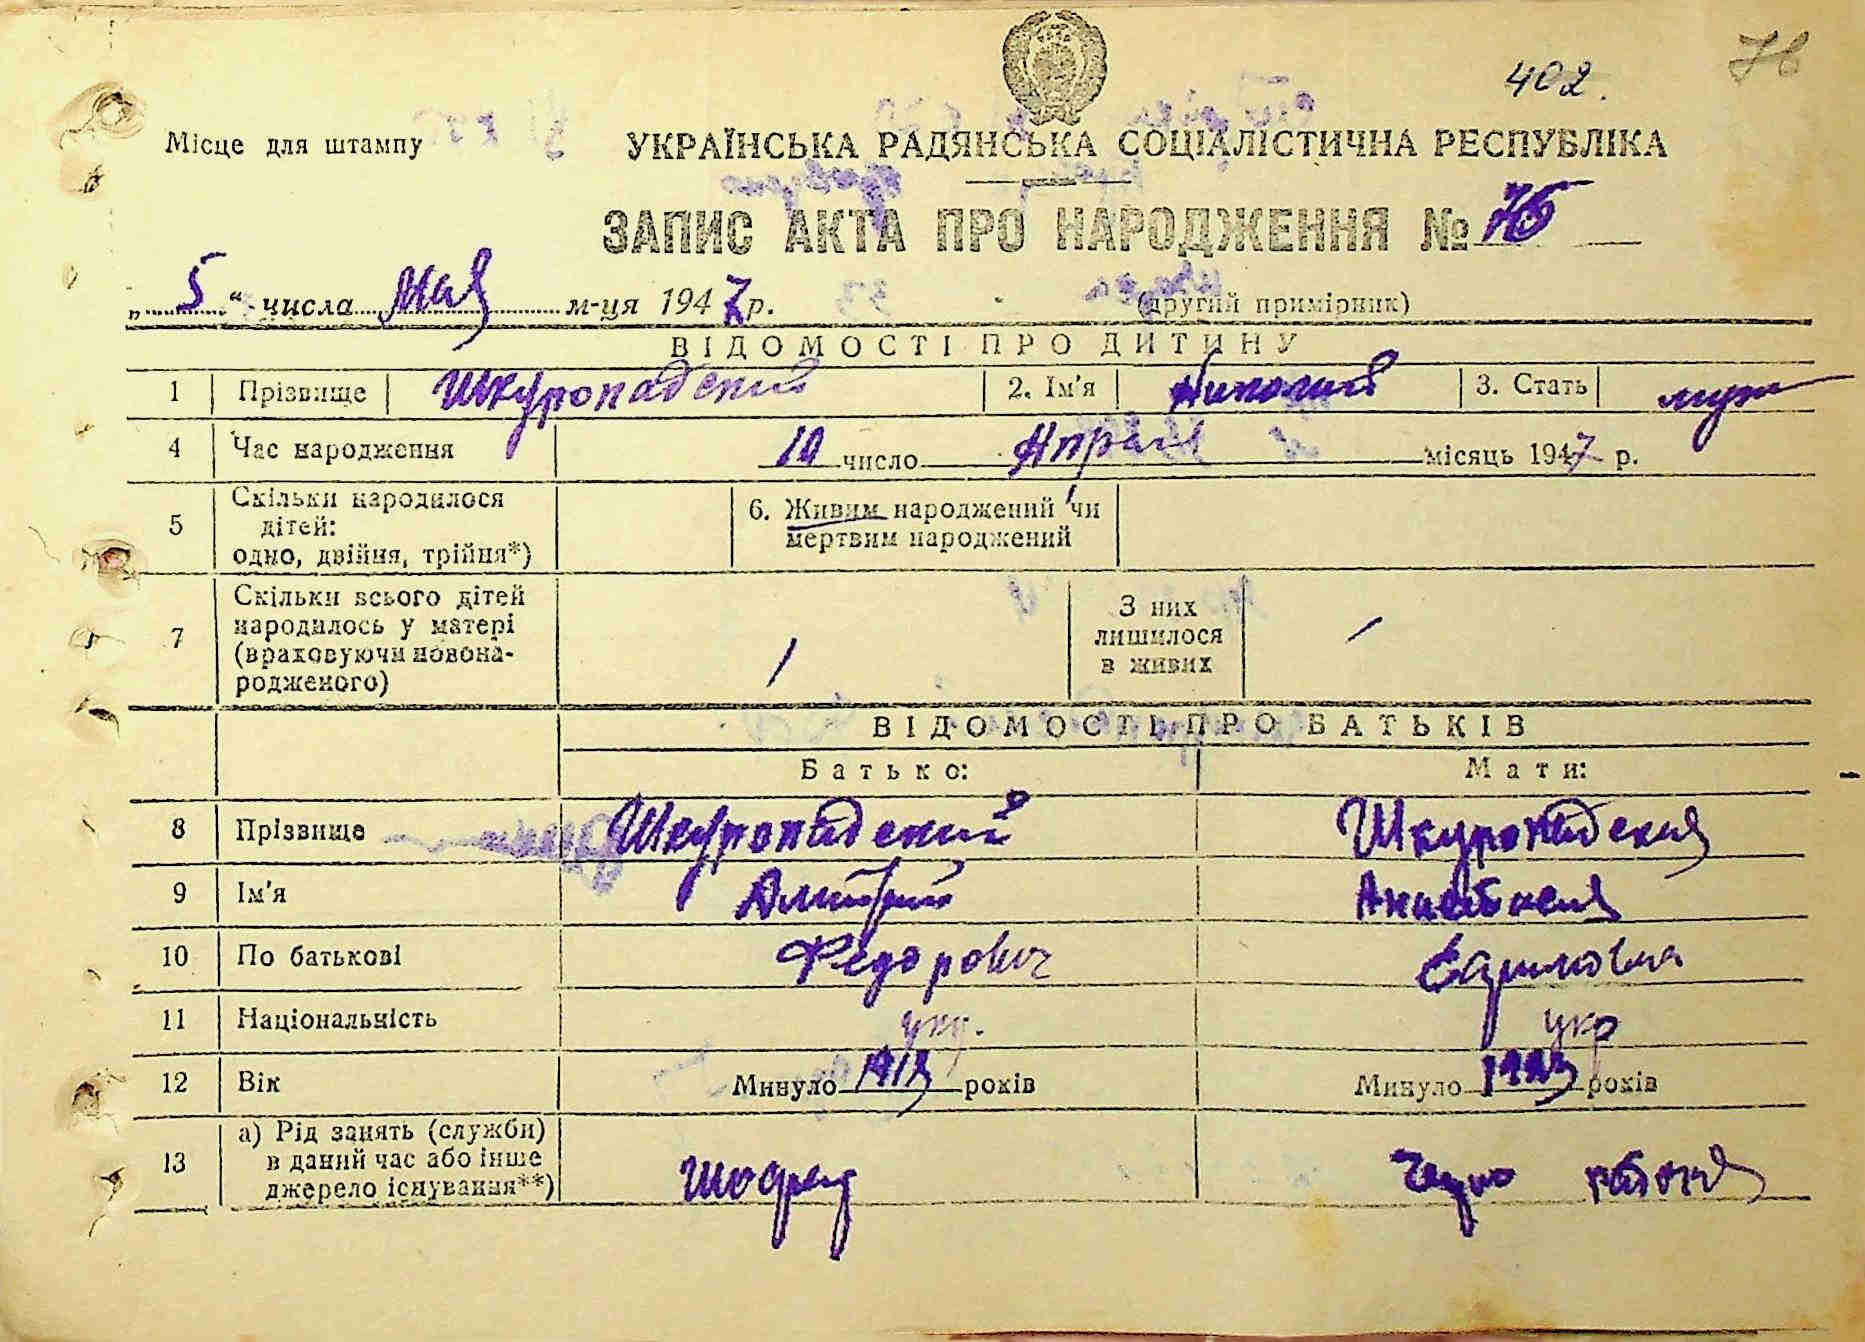 402.
76
Місце для штампу
УКРАЇНСЬКА РАДЯНСЬКА СОЦІАЛІСТИЧНА РЕСПУБЛІКА
ЗАПИС АКТА ПРО НАРОДЖЕННЯ № 76
„ 5 “ числа Мая м-ця 1947 р.
(другий примірник)
ВІДОМОСТІ ПРО ДИТИНУ
1 Прізвище Шкуропадский 2. Ім'я Николай 3. Стать муж
4 Час народження 10 число Апреля місяць 1947 р.
5 Скільки народилося дітей: одно, двійня, трійня*) 6. Живим народжений чи мертвим народжений
7 Скільки всього дітей народилось у матері (враховуючи новонародженого) / З них лишилося в живих /
ВІДОМОСТІ ПРО БАТЬКІВ
Батько: Мати:
8 Прізвище Шкуропадский Шкуропадская
9 Ім'я Дмитрий
10 По батькові Федорович
11 Національність укр. укр
12 Вік Минуло років Минуло 1923 років
13 а) Рід занять (служби) в даний час або інше джерело існування**) Шофер